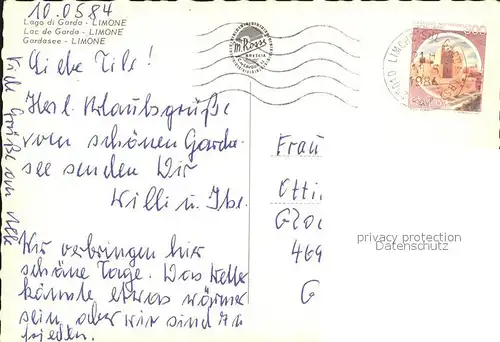 10.0584
Lago di Garda - LIMONE
Lac de Garda - LIMONE
Gardasee - LIMONE
Liebe Tils!
Herzl. Urlaubsgrüße
vom schönen Garda-
see senden Wir
Willi u.
Wir verbringen hier
schöne Tage. Das Wetter
könnte etwas wärmer
sein, aber wir sind zu
frieden.
Viele Grüße an Alle
M. Rossi
BRESCIA
LIMONE
1984
Frau
Otti
Gloc
469
G
privacy protection
Datenschutz